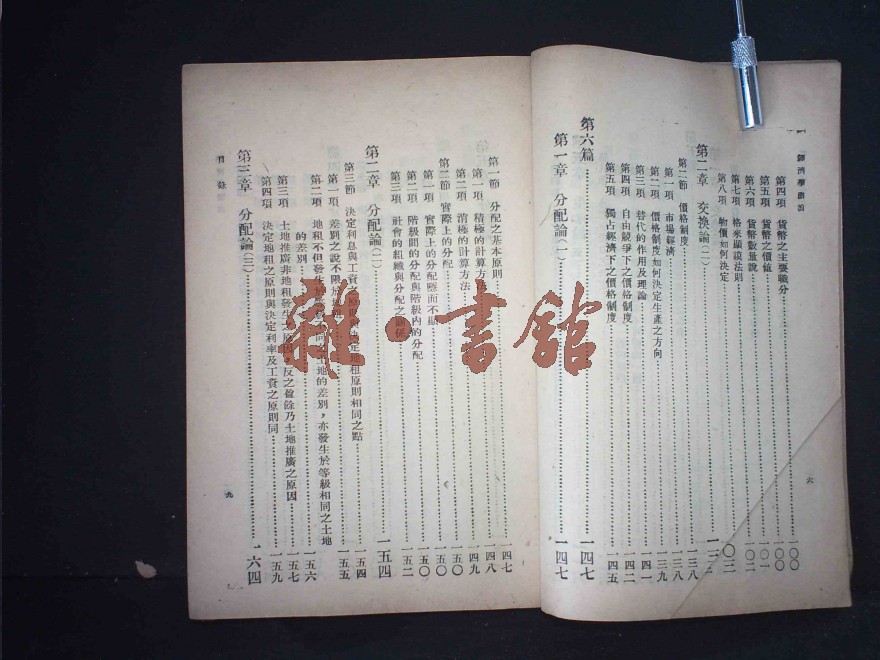 經濟學概論
第四項 貨幣之主要職分 一〇〇
第五項 貨幣之價值 一〇一
第六項 貨幣數量說 一〇二
第七項 格來顯謨法則
第八項 物價如何決定 一〇三
第二章 交換論(二)
第二節 價格制度 一三八
第一項 市場經濟 一三八
第二項 價格制度如何決定生產之方向 一三九
第三項 替代的作用及理論 一四一
第四項 自由競爭下之價格制度 一四二
第五項 獨占經濟下之價格制度 一四五
第六篇 一四七
第一章 分配論(一) 一四七
六
第一節 分配之基本原則 一四七
第一項 積極的計算方法 一四八
第二項 消極的計算方法 一四九
第二節 實際上的分配 一五〇
第一項 實際上的分配隱而不顯 一五〇
第二項 階級間的分配與階級內的分配 一五〇
第三項 社會的組織與分配之關係 一五二
第二章 分配論(二) 一五四
第三節 決定利息與工資之原則與決定地租原則相同之點 一五四
第一項 差別之說不限於 一五五
第二項 地租不但發生於 土地的差別,亦發生於等級相同之土地
的差別 一五六
第三項 土地推廣非地租發生之原因,反之盈餘乃土地推廣之原因 一五七
第四項 決定地租之原則與決定利率及工資之原則同 一五九
第三章 分配論(三) 一六四
目錄
九
雜·書館